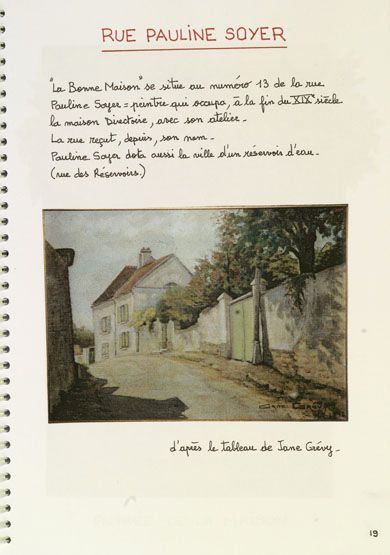 RUE PAULINE SOYER
"La Bonne Maison" se situe au numéro 13 de la rue
Pauline Soyer - peintre qui occupa, à la fin du XIXe siècle
la maison Directoire, avec son atelier -
La rue reçut, depuis, son nom -
Pauline Soyer dota aussi la ville d'un réservoir d'eau -
(rue des Réservoirs.)
Jane Grévy
d'après le tableau de Jane Grévy -
19